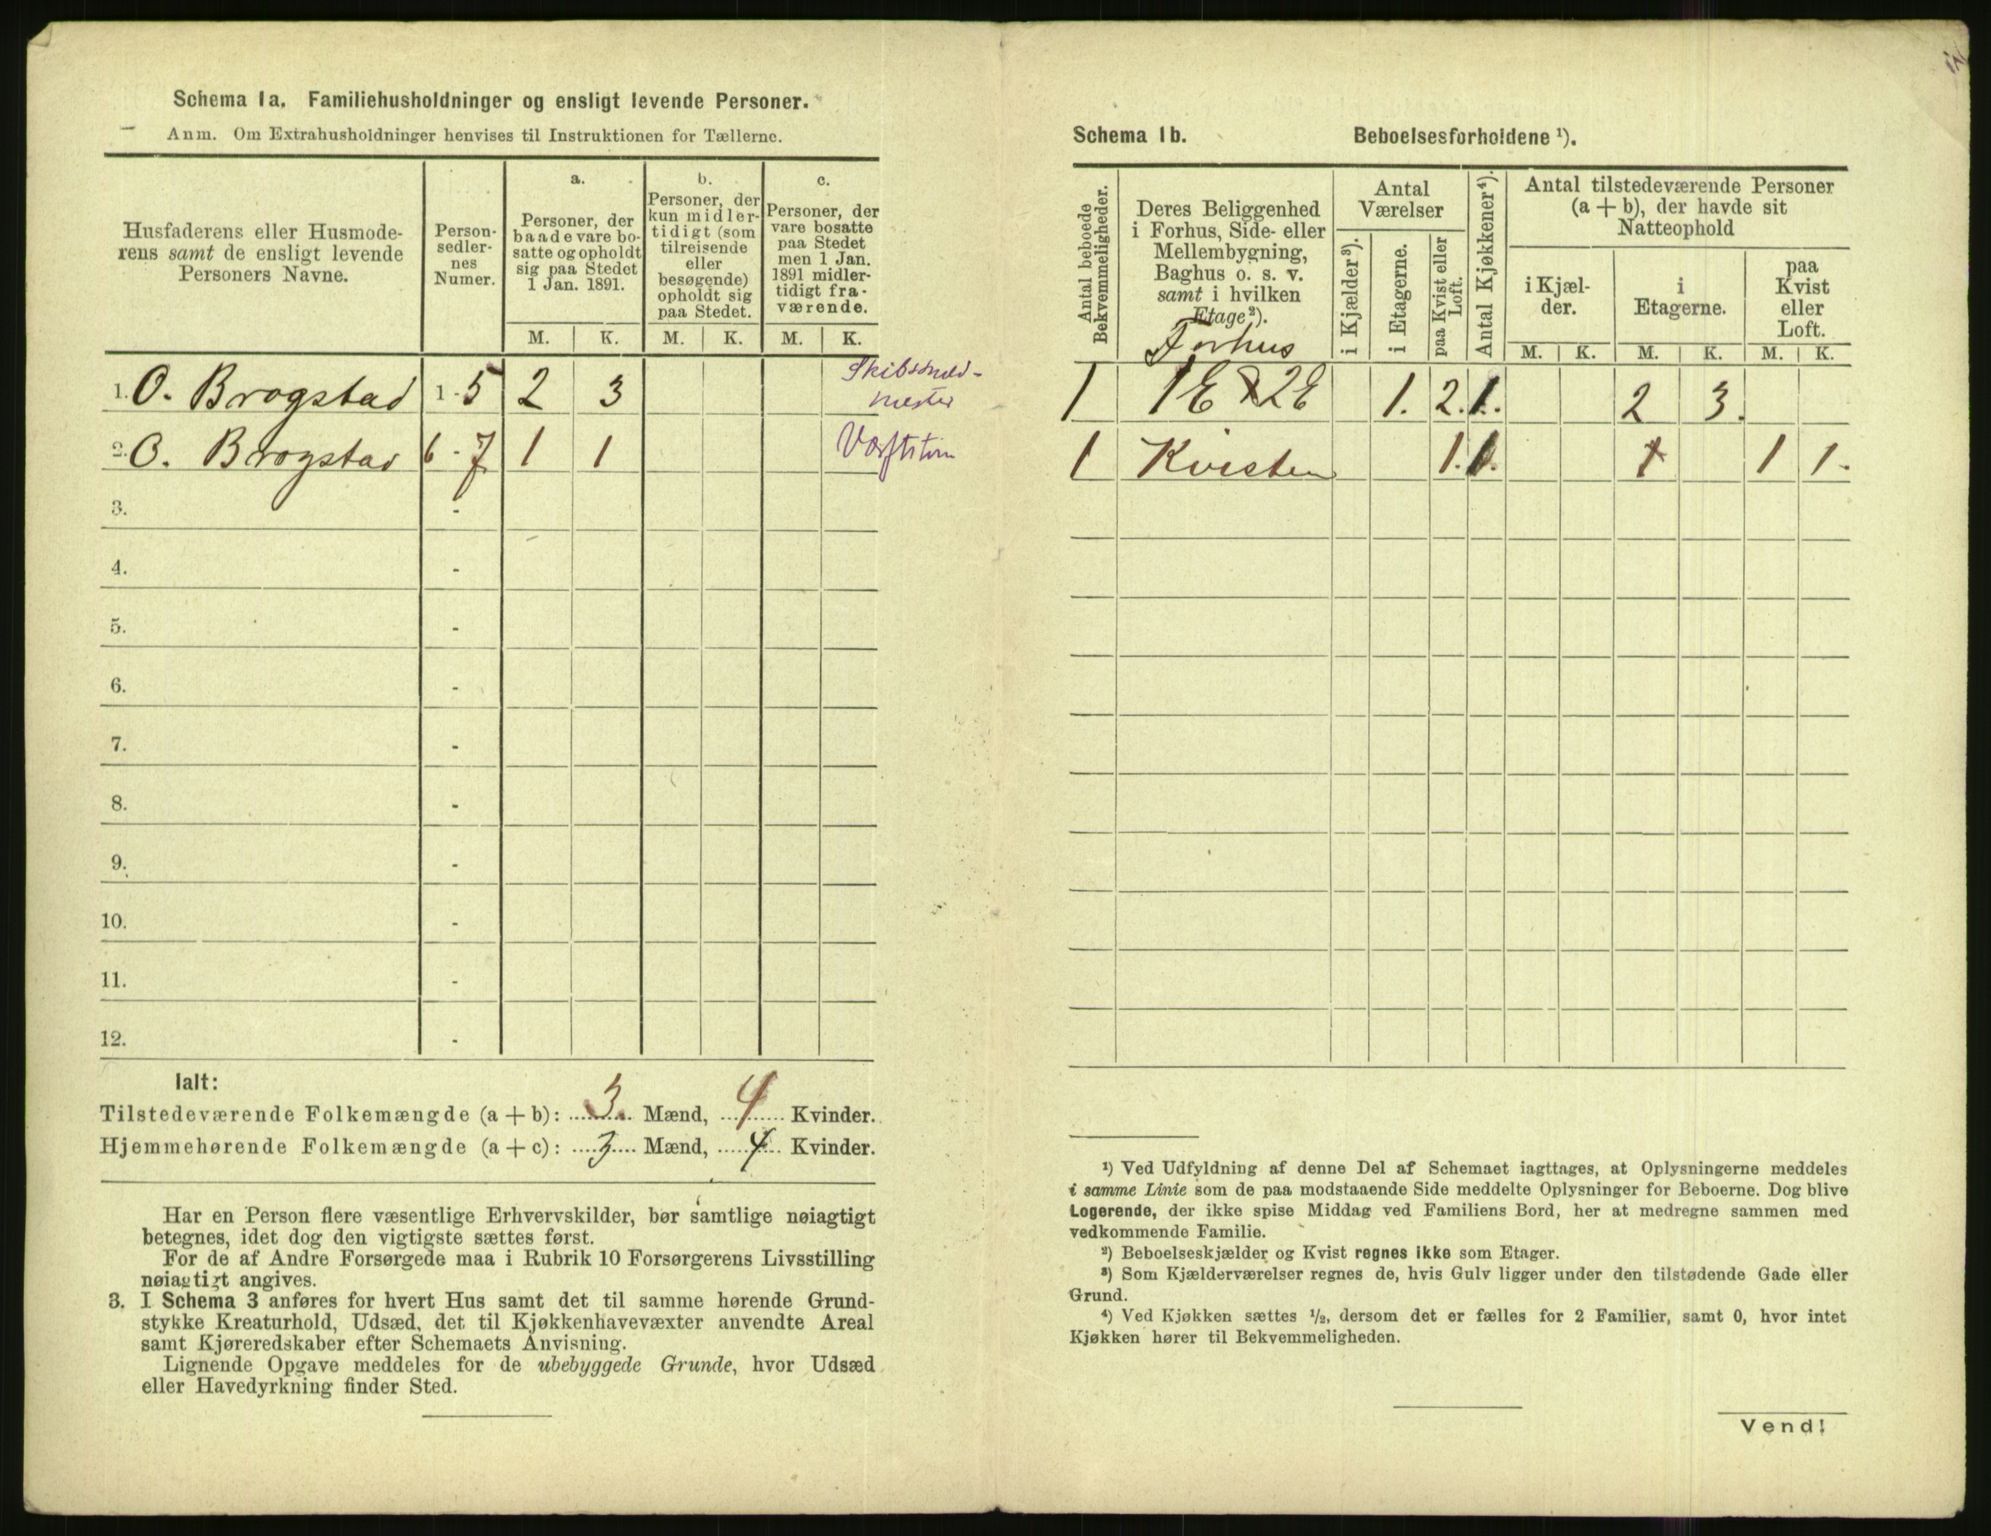 Schema 1a. Familiehusholdninger og ensligt levende Personer.
Anm. Om Extrahusholdninger henvises til Instruktionen for Tællerne.
Husfaderens eller Husmode-
rens samt de ensligt levende
Personers Navne.
Person-
sedler-
nes
Numer.
a.
Personer, der
baade vare bo-
satte og opholdt
sig paa Stedet
1 Jan. 1891.
b.
Personer, der
kun midler-
tidigt (som
tilreisende
eller
besøgende)
opholdt sig
paa Stedet.
c.
Personer, der
vare bosatte
paa Stedet
men 1 Jan.
1891 midler-
tidigt fra-
værende.
M. K. M. K. M. K.
1. O. Brogstad 1-5 2 3 Skibssmed-
mester
2. O. Brogstad 6-7 1 1
3. -
4. -
5. -
6. -
7. -
8. -
9. -
10. -
11. -
12. -
Ialt:
Tilstedeværende Folkemængde (a + b): 3. Mænd, 4 Kvinder.
Hjemmehørende Folkemængde (a + c): 3 Mænd, 4 Kvinder.
Har en Person flere væsentlige Erhvervskilder, bør samtlige nøiagtigt
betegnes, idet dog den vigtigste sættes først.
For de af Andre Forsørgede maa i Rubrik 10 Forsørgerens Livsstilling
nøiagtigt angives.
3. I Schema 3 anføres for hvert Hus samt det til samme hørende Grund-
stykke Kreaturhold, Udsæd, det til Kjøkkenhavevæxter anvendte Areal
samt Kjøreredskaber efter Schemaets Anvisning.
Lignende Opgave meddeles for de ubebyggede Grunde, hvor Udsæd
eller Havedyrkning finder Sted.
Schema 1b. Beboelsesforholdene ¹).
Antal beboede
Bekvemmeligheder.
Deres Beliggenhed
i Forhus, Side- eller
Mellembygning,
Baghus o. s. v.
samt i hvilken
Etage²).
Forhus
Antal
Værelser
i Kjælder³).
i Etagerne.
paa Kvist eller
Loft.
Antal Kjøkkener⁴).
Antal tilstedeværende Personer
(a + b), der havde sit
Natteophold
i Kjæl-
der.
i
Etagerne.
paa
Kvist
eller
Loft.
M. K. M. K. M. K.
1 1E 2E 1. 2. 1. 2 3.
1 Kvisten 1. 1. 1 1 1.
¹) Ved Udfyldning af denne Del af Schemaet iagttages, at Oplysningerne meddeles
i samme Linie som de paa modstaaende Side meddelte Oplysninger for Beboerne. Dog blive
Logerende, der ikke spise Middag ved Familiens Bord, her at medregne sammen med
vedkommende Familie.
²) Beboelseskjælder og Kvist regnes ikke som Etager.
³) Som Kjælderværelser regnes de, hvis Gulv ligger under den tilstødende Gade eller
Grund.
⁴) Ved Kjøkken sættes ½, dersom det er fælles for 2 Familier, samt 0, hvor intet
Kjøkken hører til Bekvemmeligheden.
Vend!